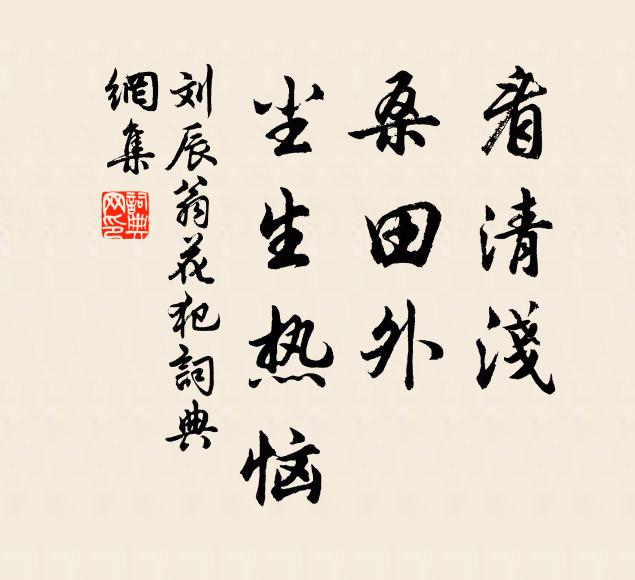 看清淺
桑田外
尘生热恼
刘辰翁花犯詞典
網集
詞典
网印